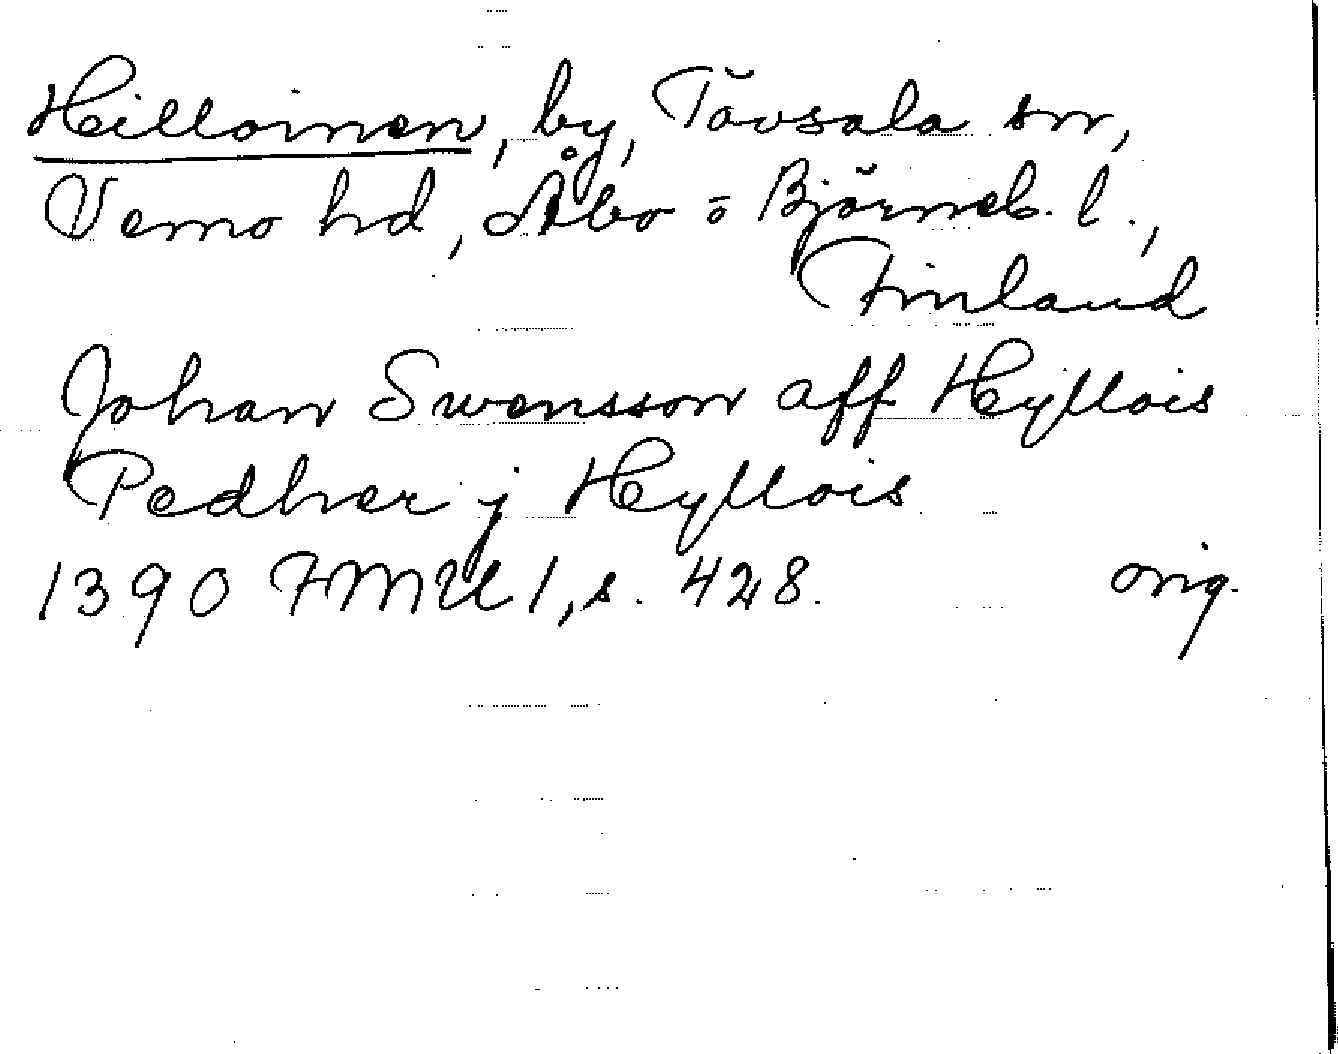 Hilloinen, by, Tövsala sn,
Vemo hd, Åbo o Björneb. l.,
Finland
Johan Swensson aff Heyllois
Pedher j Heyllois
1390 FMU 1, s. 428. orig.